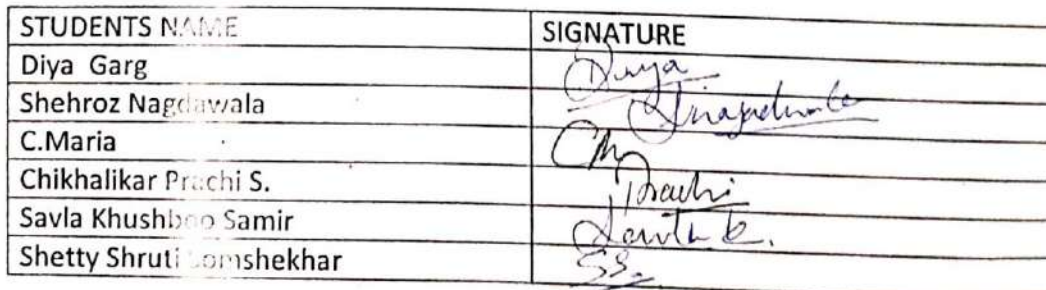 STUDENTS NAME SIGNATURE
Diya Garg Diya
Shehroz Nagdawala
C.Maria CM
Chikhalikar Prachi S. Prachi
Savla Khushboo Samir Savla k.
Shetty Shruti Somshekhar SS